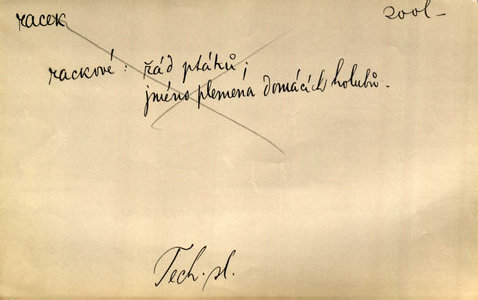 racek
zool.
rackové: řád ptáků;
jméno plemena domácích holubů.
Tech. sl.